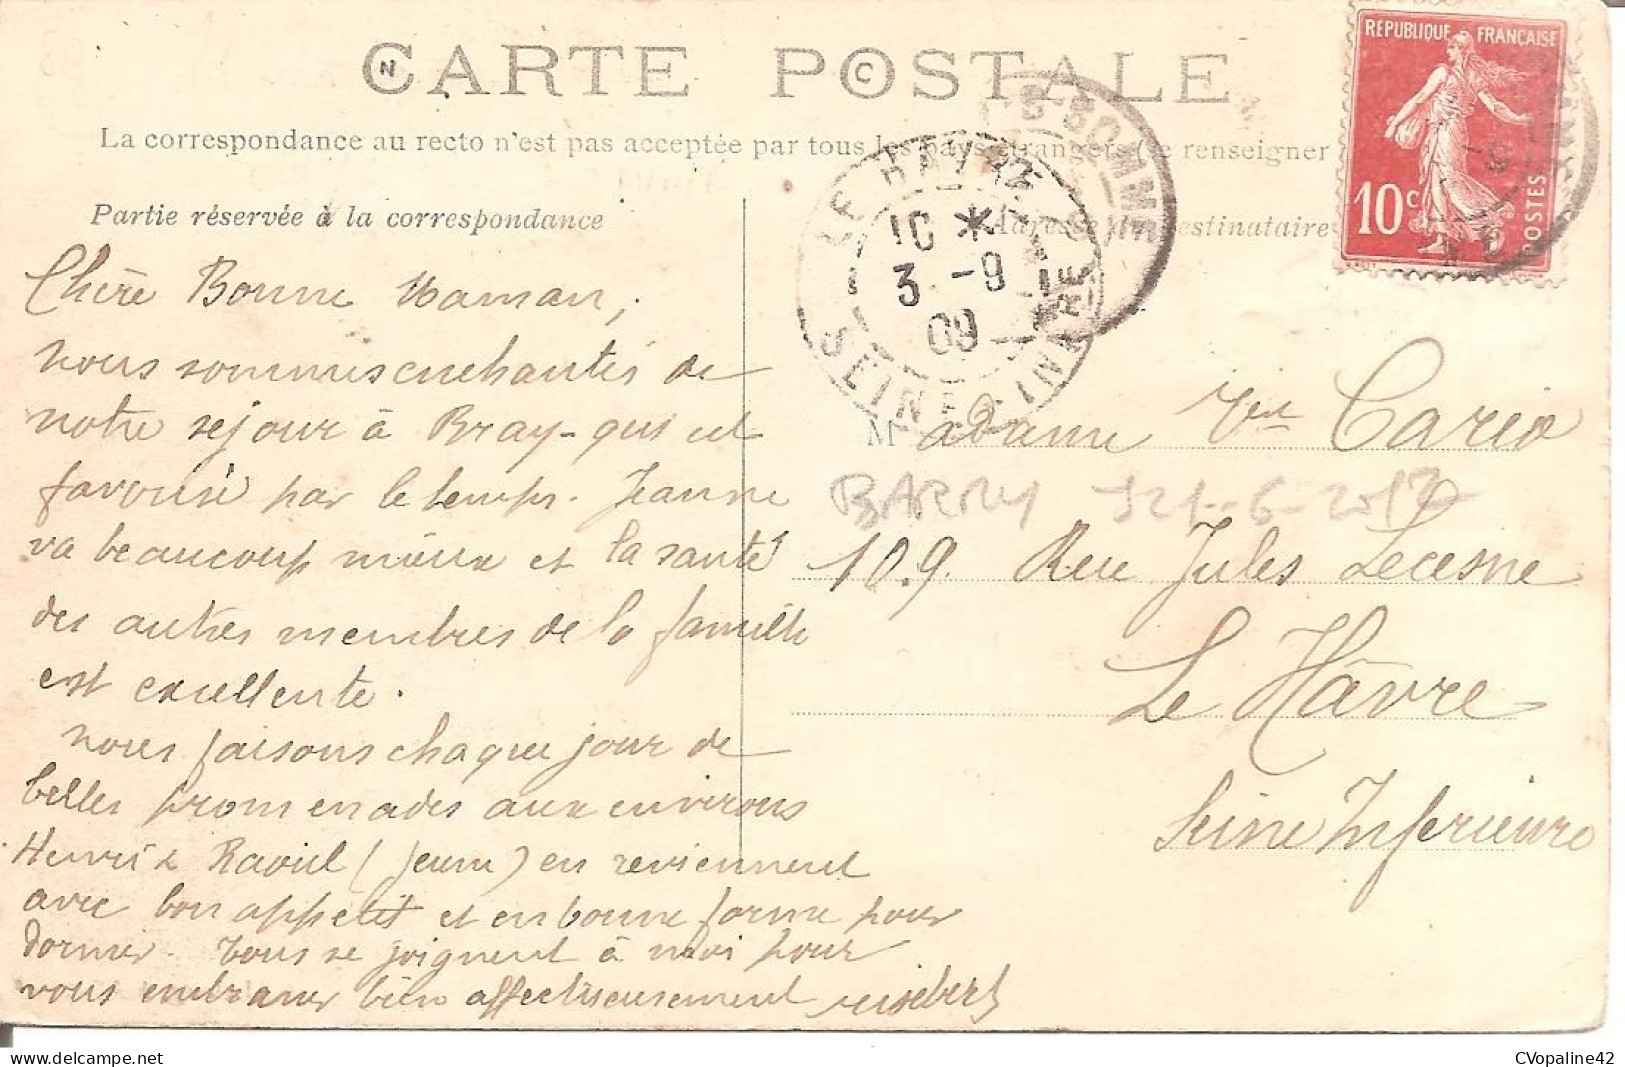 CARTE POSTALE
N C
La correspondance au recto n'est pas acceptée par tous les pays étrangers (se renseigner
REPUBLIQUE FRANÇAISE
10c
POSTES
Partie réservée à la correspondance
Adresse du destinataire
LE HAVRE
10 *
3 - 9
09
SEINE INFRE
S-SOMME
Chère Bonne Maman,
nous sommes enchantés de
notre sejour à Bray - qui est
favorisé par le temps. Jeanne
va beaucoup mieux et la santé
des autres membres de la famille
est excellente.
nous faisons chaque jour de
belles promenades aux environs
Henri & Raoul (jeune) en reviennent
avec bon appétit et en bonne forme pour
dormir. Tous se joignent à moi pour
vous embrasser bien affectueusement
Madame Vve Cario
BARRY 21-6-2017
109. Rue Jules Lecesne
Le Hâvre
Seine Inferieure
CVopaline42